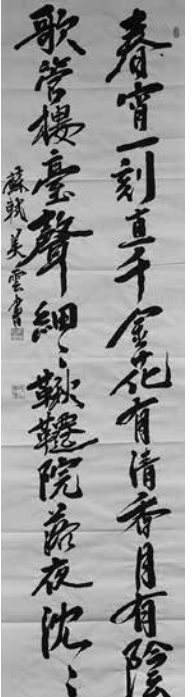 春宵一刻直千金花有清香月有陰
歌管樓臺聲細〻鞦韆院落夜沈〻
蘇軾 吴雲書